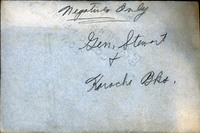 Negatives Only
Gen. Stewart
&
Karachi Bks.